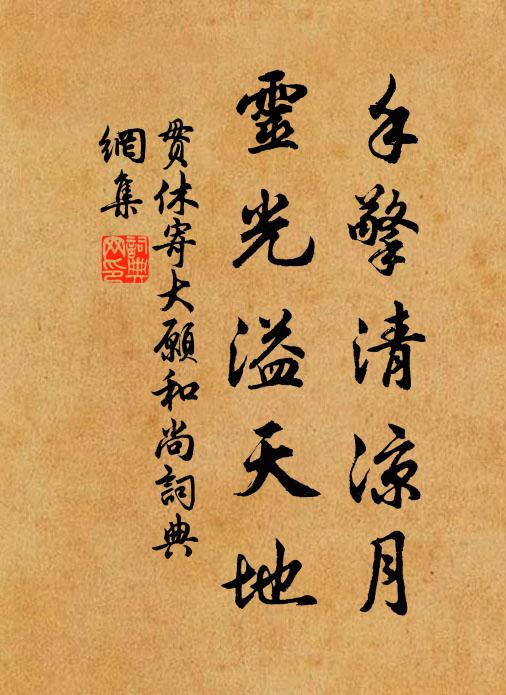 手擎清涼月
靈光溢天地
貫休寄大願和尚詞典
網集
詞典
网印